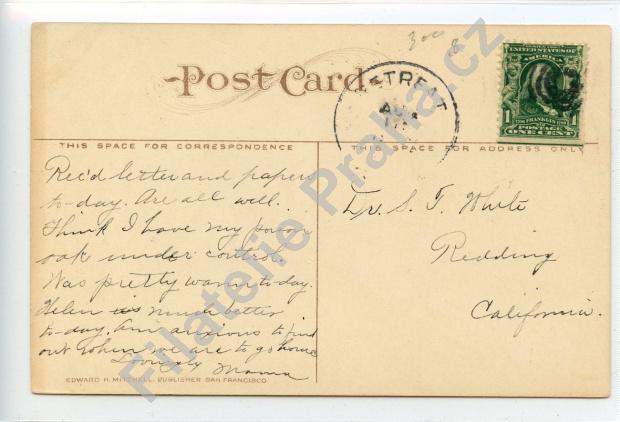 300
8
Post Card
UNITED STATES OF
AMERICA
1 FRANKLIN 1
POSTAGE
ONE CENT
THIS SPACE FOR CORRESPONDENCE
THIS SPACE FOR ADDRESS ONLY
Rec'd letter and paper
to-day. Are all well.
Think I have my poison
oak under control
Was pretty warm to-day.
Helen is much better
to-day. Am anxious to find
out when we are to go home
Lovingly Mama
S. T. White
Redding
California.
EDWARD H. MITCHELL, PUBLISHER SAN FRANCISCO
Filatelie Praha.cz